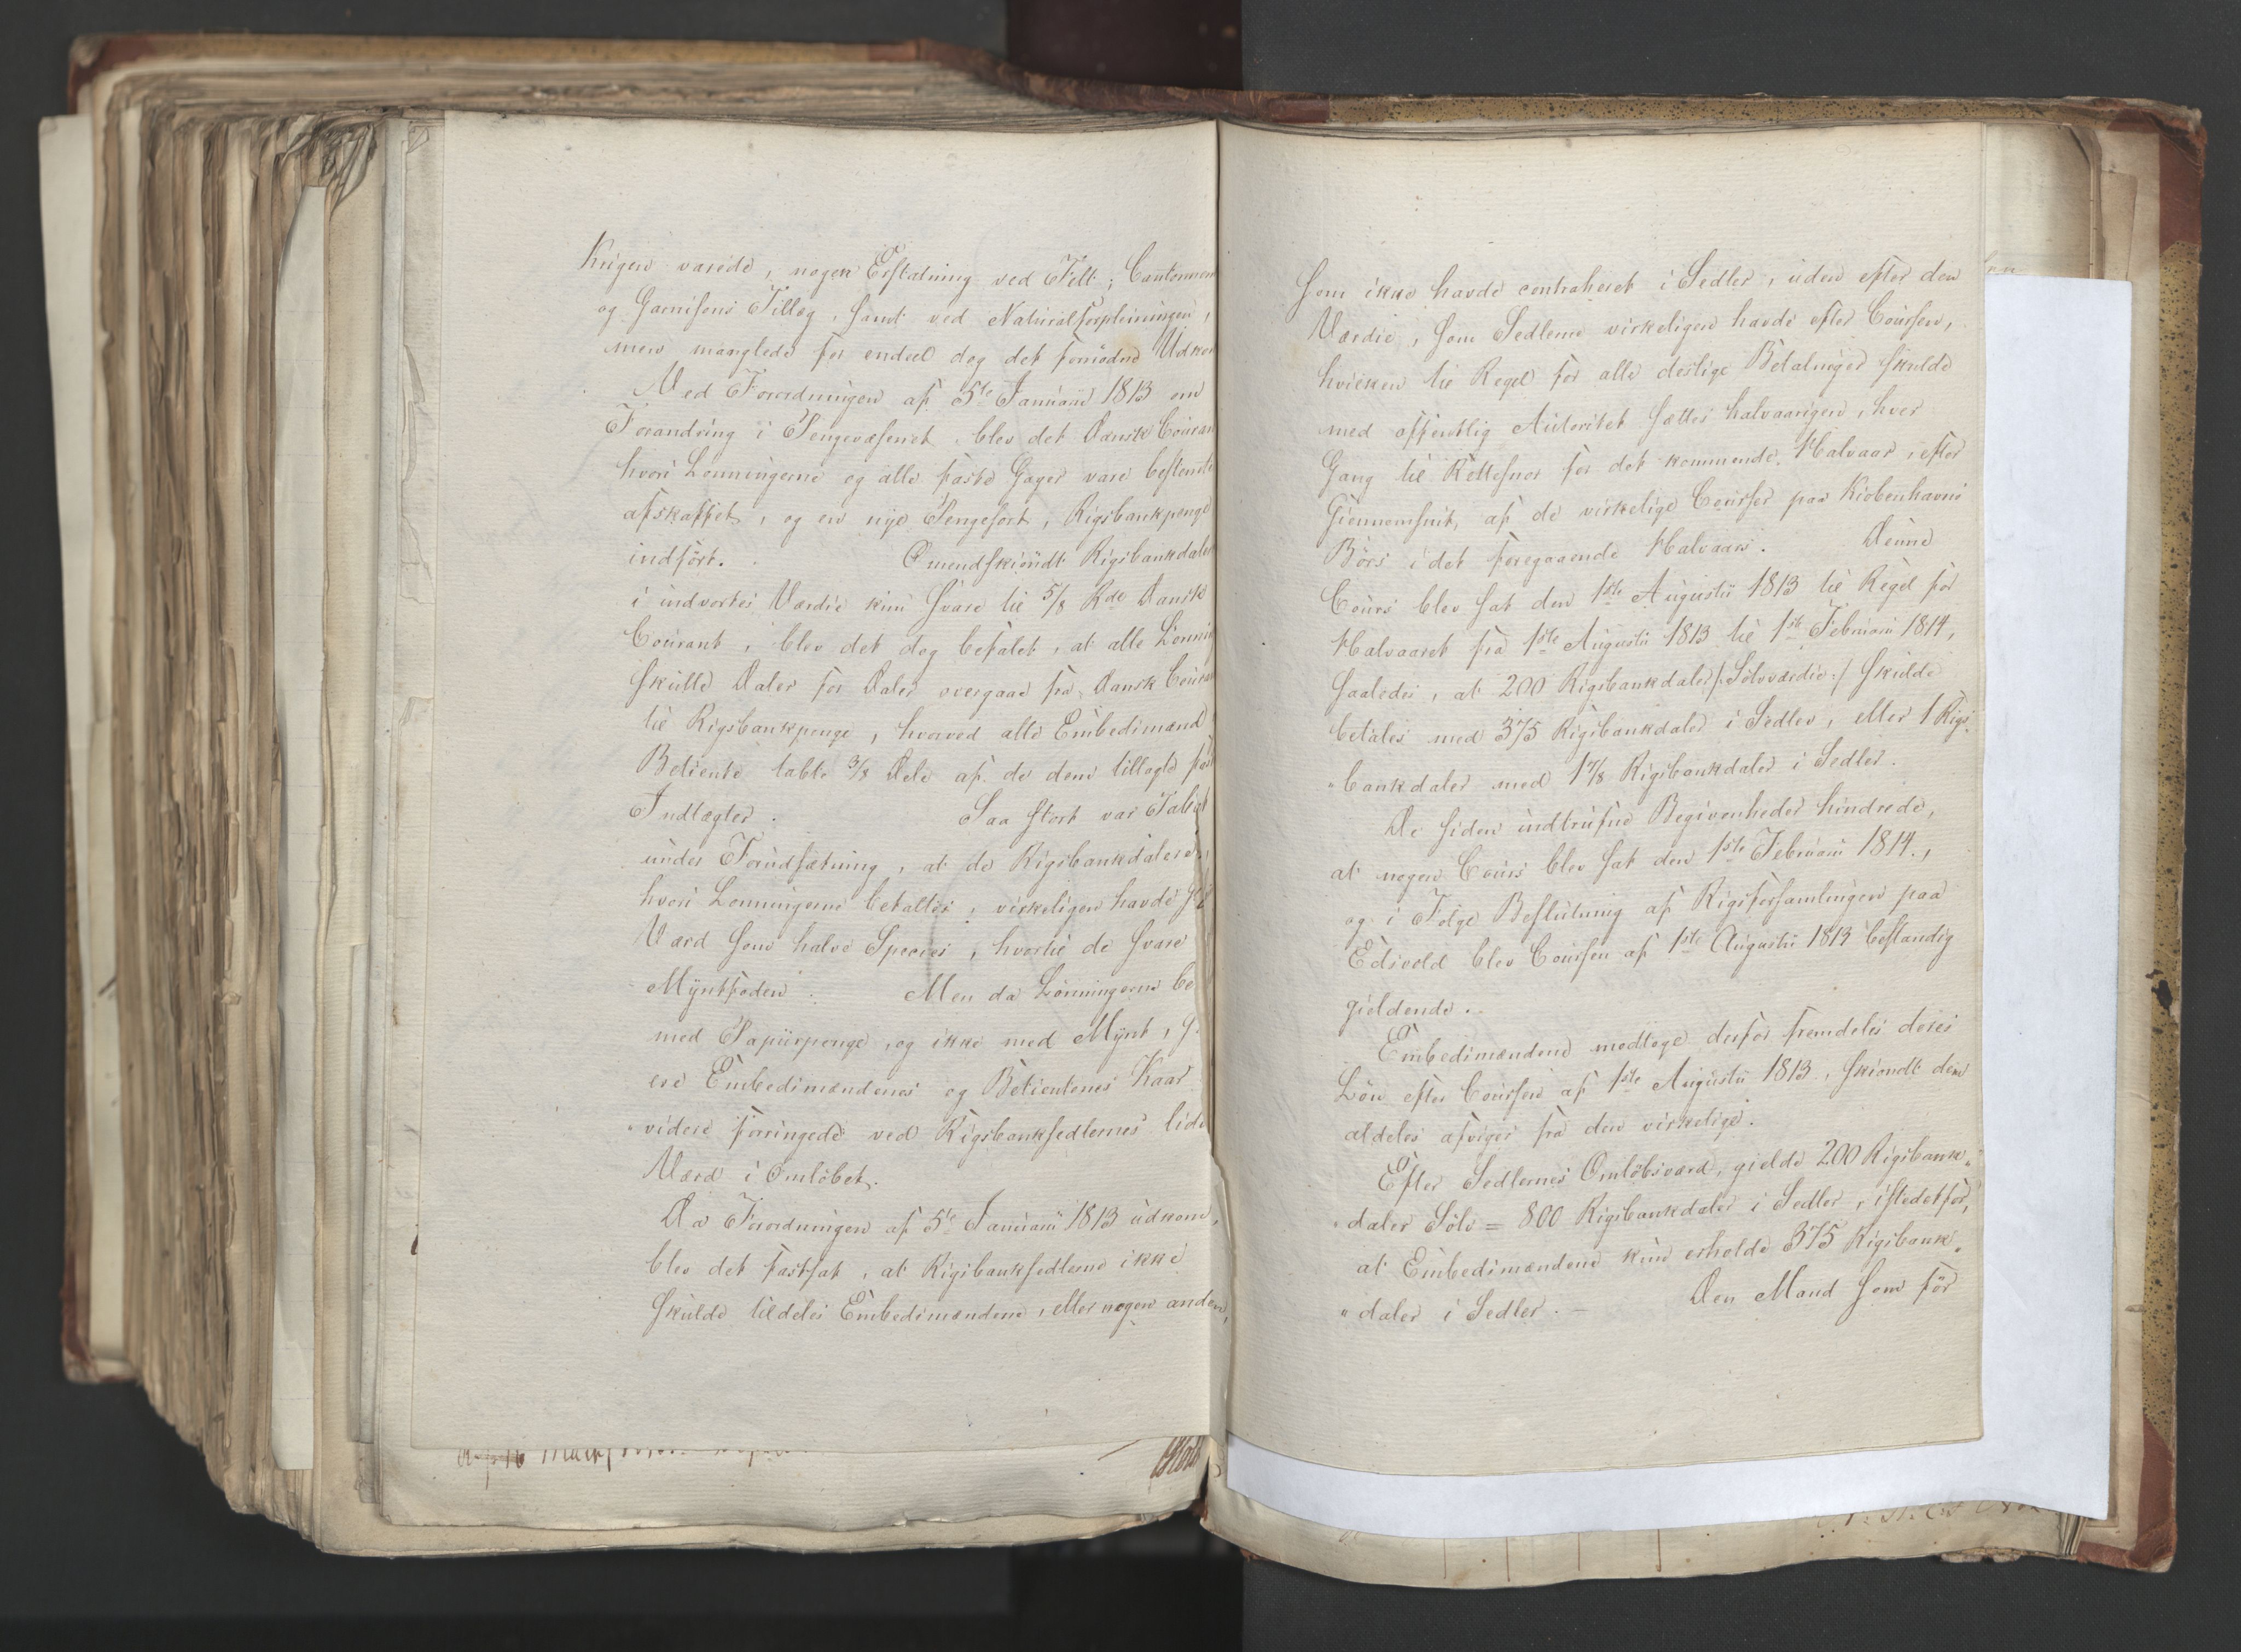 Krigen varede, nogen Erstatning ved Felt; Cantonnem
og Garnisons Tillæg, samt ved Naturalforpleiningen,
men manglede for endeel dog det fornødne Udkom
Ved Forordningen af 5te Januarii 1813 om
Forandring i Pengevæsenet blev det Dansk Couran
hvori Lønningerne og alle faste Gager vare bestemte
afskaffet, og en nye Pengesort, Rigsbankpenge
indført. Omendskiöndt Rigsbankdaler
i indvortes Værdie kun svare til 5/8 Rdr Dansk
Courant, blev det dog befalet, at alle Lønnin
skulle Daler for Daler overgaae fra Dansk Couran
til Rigsbankpenge, hvorved alle Embedsmænd
Betiente tabte 3/8 Dele af de dem tillagte fas
Indtægter. Saa stort var Tabet
under Forudsætning, at de Rigsbankdalere,
hvori Lønningerne betaltes, virkeligen havde
Værd som halve Species, hvortil de svare
Myntfoden. Men da Lønningerne be
med Papiirpenge, og ikke med Mynt,
ere Embedsmændenes og Betientenes Kaar
videre forringede ved Rigsbanksedlernes lide
Værd i Omløbet.
Da Forordningen af 5te Januarii 1813 udkom,
blev det fastsat, at Rigsbanksedlerne ikke
skulde tildeles Embedsmændene, eller nogen anden,
Som ikke havde contraheret i Sedler, uden efter den
Værdie, som Sedlerne virkeligen havde efter Coursen,
hvilken til Regel for alle deslige Betalinger skulde
med offentlig Autoritet sættes halvaarigen, hver
Gang til Rettesnor for det kommende Halvaar, efter
Giennemsnit, af de virkelige Courser paa Kiobenhavns
Börs i det foregaaende Halvaar. Denne
Cours blev sat den 1ste Augustii 1813 til Regel for
Halvaaret fra 1ste Augustii 1813 til 1ste Februarii 1814,
saaledes, at 200 Rigsbankdaler /: Sölvværdie :/ skulde
betales med 375 Rigsbankdaler i Sedler, eller 1 Rigs„
„bankdaler med 1 7/8 Rigsbankdaler i Sedler.
De siden indtrufne Begivenheder hindrede,
at nogen Cours blev sat den 1ste Februarii 1814.,
og i Følge Beslutning af Rigsforsamlingen paa
Edsvold blev Coursen af 1ste Augustii 1813 bestandig
gieldende.
Embedsmændene modtoge derfor fremdeles deres
Lön efter Coursen af 1ste Augustii 1813, skiöndt den
aldeles afviger fra den virkelige.
Efter Sedlernes Omlöbsværd, gielde 200 Rigsbank„
„daler Sölv = 800 Rigsbankdaler i Sedler, istedetfor,
at Embedsmændene kun erholde 375 Rigsbank„
„daler i Sedler. — Den Mand som för